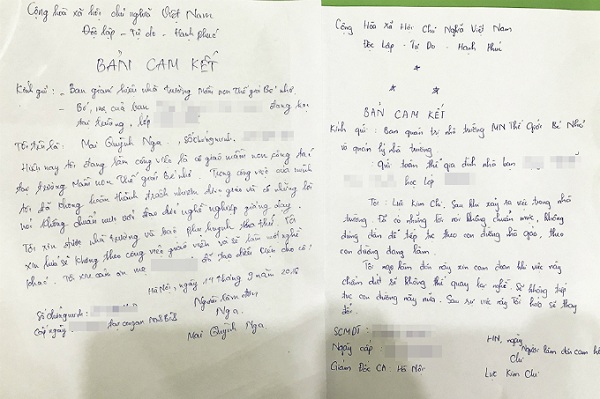 Cộng hòa xã hội chủ nghĩa Việt Nam
Độc lập - Tự do - Hạnh phúc
BẢN CAM KẾT
Kính gửi : - Ban giám hiệu nhà trường Mầm non Thế giới Bé nhỏ.
- Bố, mẹ của bạn đang học
tại trường, lớp
Tôi tên là : Mai Quỳnh Nga , Số chứng minh:
Hiện nay tôi đang làm công việc là cô giáo mầm non công tác
tại trường Mầm non Thế giới Bé nhỏ. Trong công việc của mình
tôi đã không hoàn thành trách nhiệm được giao và có những lời
nói không chuẩn mực với đạo đức nghề nghiệp giảng dạy.
Tôi xin được nhà trường và bậc phụ huynh tha thứ. Tôi
xin hứa sẽ không theo công việc giáo viên và sẽ làm một nghề
khác. Tôi xin cảm ơn mẹ đã tạo điều kiện cho cô!
Hà Nội, ngày 14 tháng 9 năm 2016
Người làm đơn
Số chứng minh:
Cấp ngày: tại công an
Nga
Mai Quỳnh Nga
Cộng Hòa Xã Hội Chủ Nghĩa Việt Nam
Độc Lập - Tự Do - Hạnh Phúc
BẢN CAM KẾT
Kính gửi : Ban quản trị nhà trường MN Thế Giới Bé Nhỏ
và quản lý nhà trường
Quí toàn thể gia đình nhà bạn
học lớp
Tôi : Lưu Kim Chi. Sau khi xảy ra việc trong nhà
trường. Đã có những lời nói không chuẩn mực, không
đúng đắn để tiếp tục theo con đường nhà giáo, theo
con đường đang làm.
Tôi nay làm đơn này xin cam đoan khi việc này
chấm dứt sẽ không thể quay lại nghề. Sẽ không tiếp
tục con đường này nữa. Sau sự việc này tôi hứa sẽ thay
đổi.
SCMDT :
Ngày cấp :
Giám Đốc CA Hà Nội
HN, ngày
Người làm đơn cam kết
Chi
Lưu Kim Chi